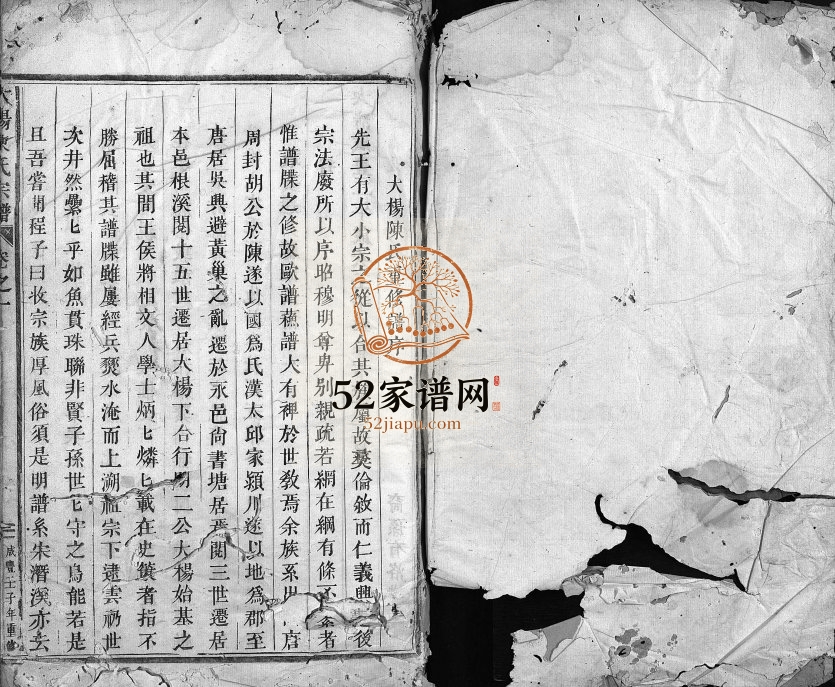 大楊陳氏重修譜序
先王有大小宗之從以合其族屬故彜倫敘而仁義興後
宗法廢所以序昭穆明尊卑别親疏若網在綱有條不紊者
惟譜牒之修故歐譜蘓譜大有裨於世敎焉余族系出唐
周封胡公於陳遂以國爲氏漢太邱家潁川遂以地爲郡至
唐居吳興避黃巢之亂遷於永邑尚書塘居焉閱三世遷居
本邑根溪閱十五世遷居大楊下台行二公大楊始基之
祖也其間王侯將相文人學士炳匕燐匕載在史者指不
勝屈稽其譜牒雖屢經兵燹水淹而上溯祖宗下逮雲礽世
次井然纍匕乎如魚貫珠聯非賢子孫世匕守之烏能若是
且吾嘗聞程子曰收宗族厚風俗須是明譜系朱潛溪亦云
大楊陳氏宗譜 卷之一
咸豐壬子年重修
52家谱网
52jiapu.com